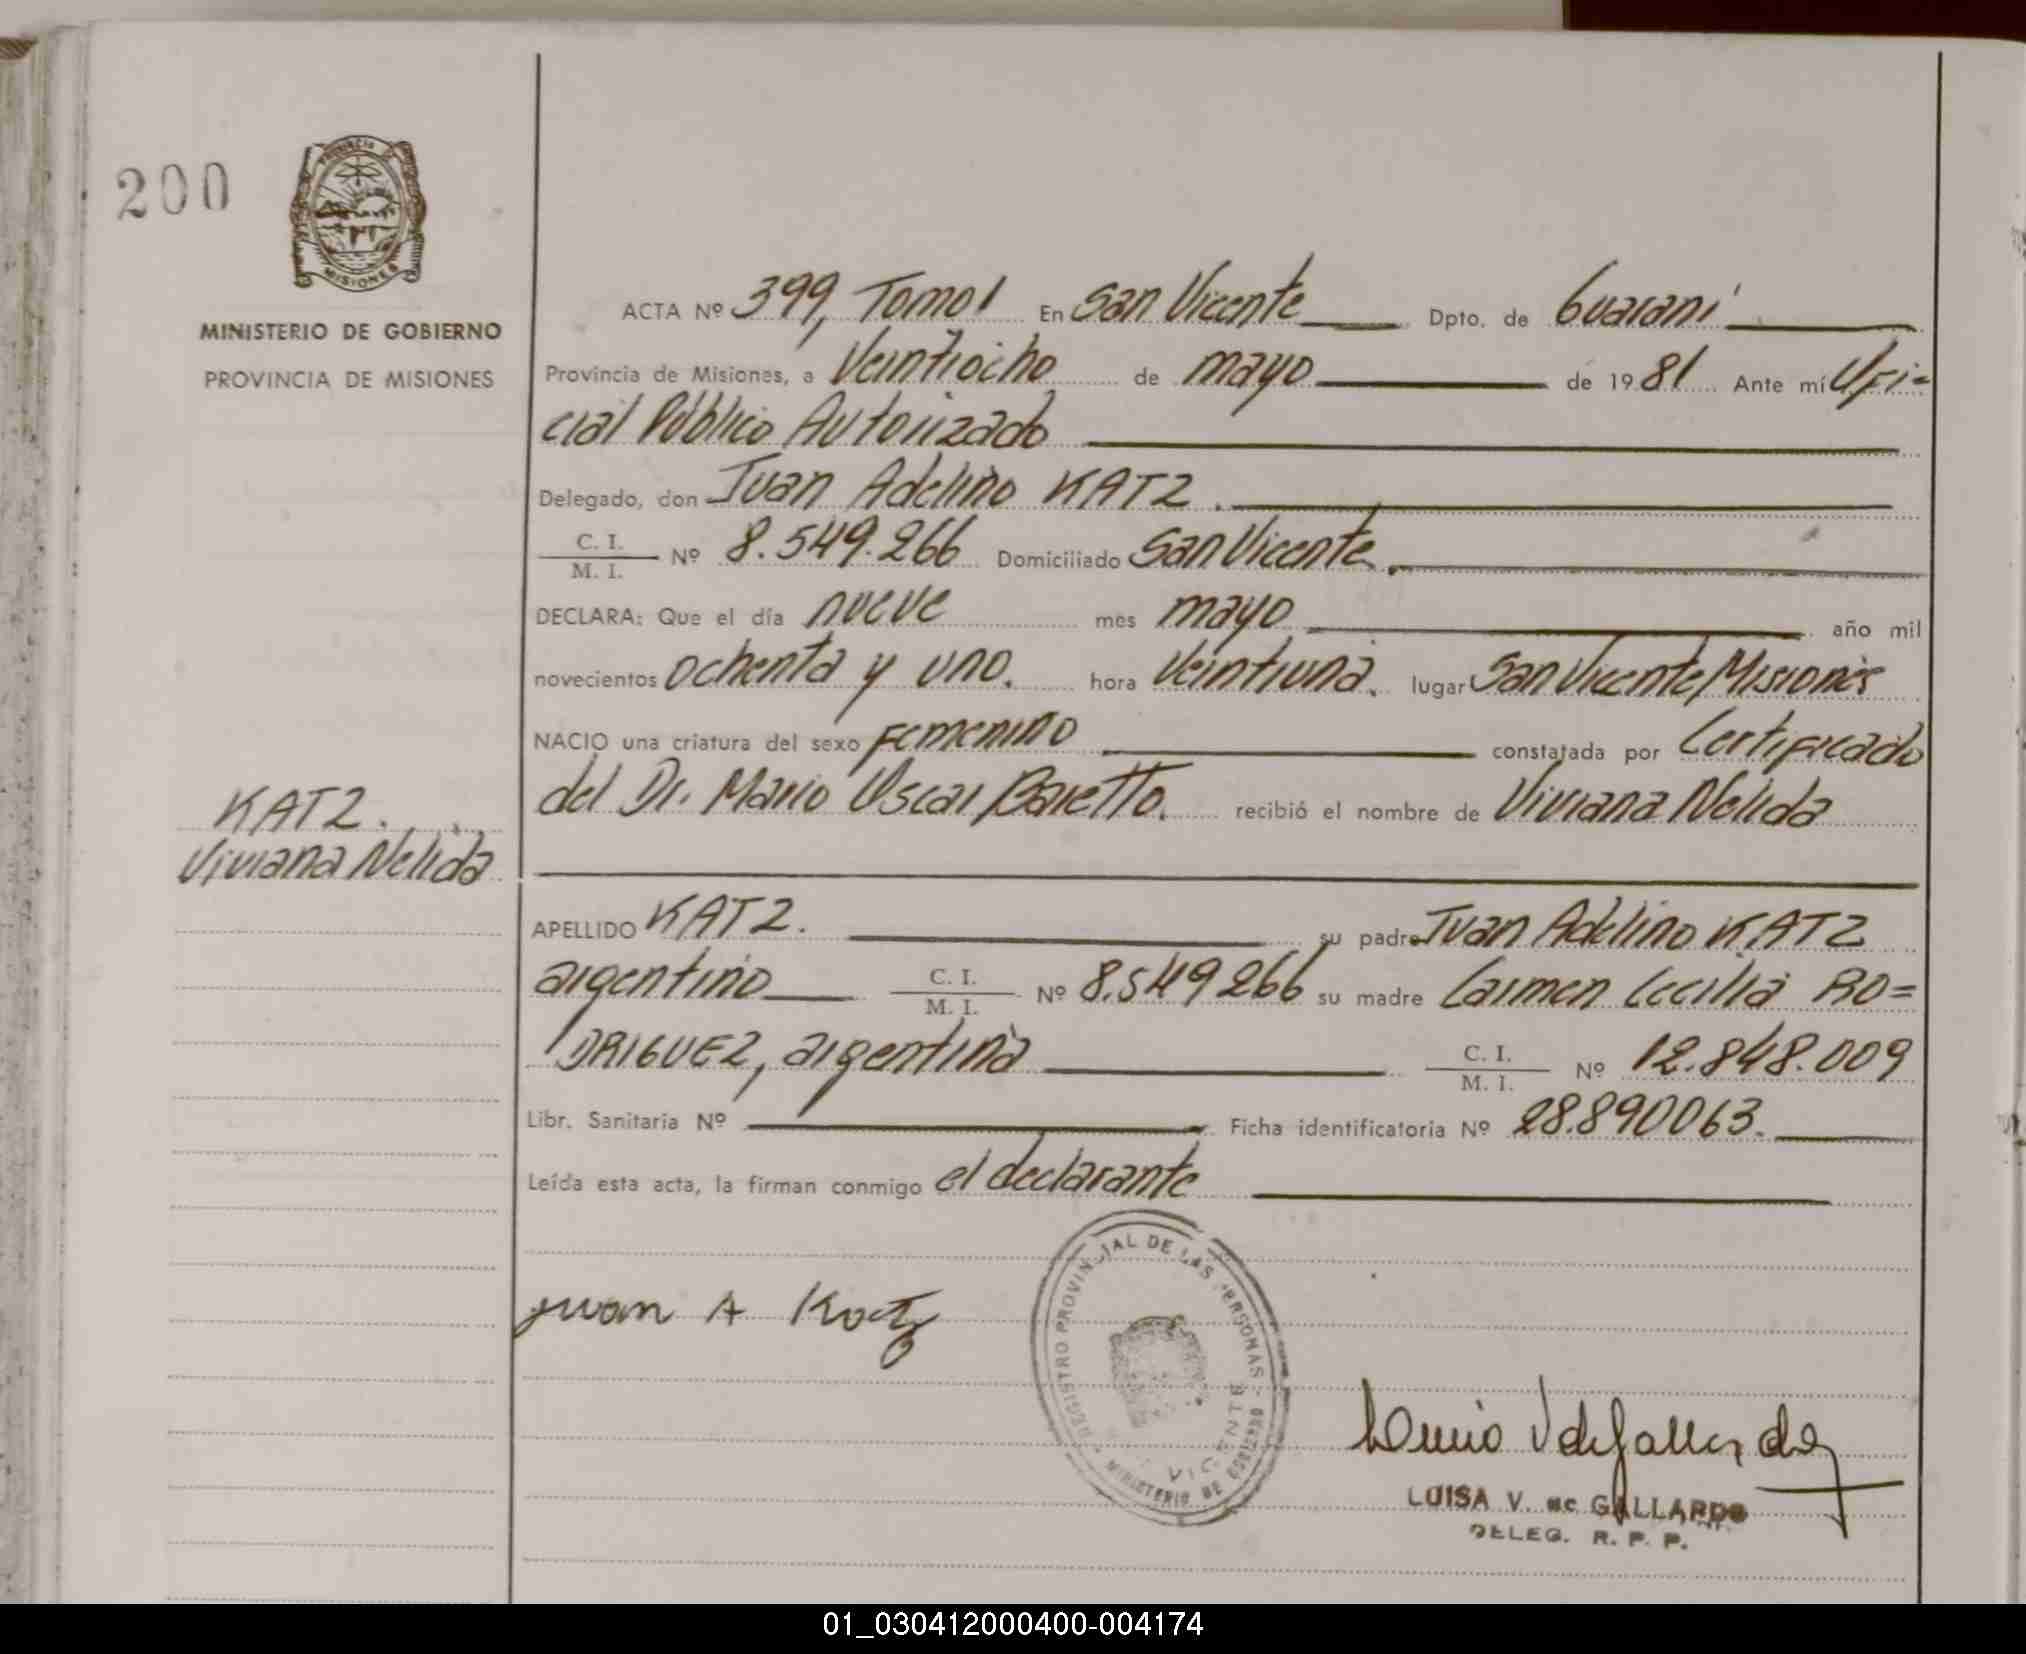 200
PROVINCIA DE
MISIONES
MINISTERIO DE GOBIERNO
PROVINCIA DE MISIONES
KATZ.
Viviana Nelida
ACTA Nº 399, Tomo I En San Vicente Dpto. de Guaraní
Provincia de Misiones, a Veintiocho de mayo de 1981 Ante mí Ofi=
cial Público Autorizado
Delegado, don Juan Adelino KATZ.
C. I.
M. I. Nº 8.549.266 Domiciliado San Vicente.
DECLARA: Que el día nueve mes mayo año mil
novecientos ochenta y uno. hora veintiuna. lugar San Vicente, Misiones
NACIO una criatura del sexo Femenino constatada por Certificado
del Dr. Mario Oscar Baretto. recibió el nombre de Viviana Nelida
APELLIDO KATZ. su padre Juan Adelino KATZ
argentino C. I.
M. I. Nº 8.549266 su madre Carmen Cecilia RO=
DRIGUEZ, argentina C. I.
M. I. Nº 12.848.009
Libr. Sanitaria Nº Ficha identificatoria Nº 28.890063.
Leída esta acta, la firman conmigo el declarante
juan A Katz
REGISTRO PROVINCIAL DE LAS PERSONAS
VICENTE
MINISTERIO DE GOBIERNO
LUISA V. de GALLARDO
DELEG. R. P. P.
01_030412000400-004174